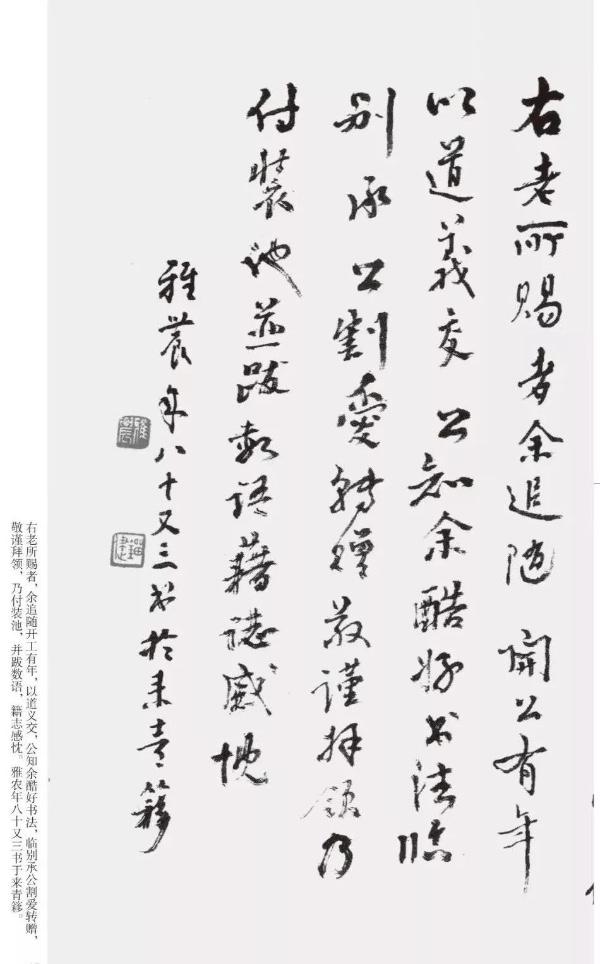 右老所賜者余追随 開公有年
以道義交 公知余酷好书法臨
别承公割愛轉贈敬謹拜領乃
付裝池並跋數語藉誌感忱
雅農年八十又三书於来青簃
雅農
右老所赐者，余追随开工有年，以道义交，公知余酷好书法，临别承公割爱转赠，
敬谨拜领，乃付装池，并跋数语，籍志感忱。雅农年八十又三书于来青簃。